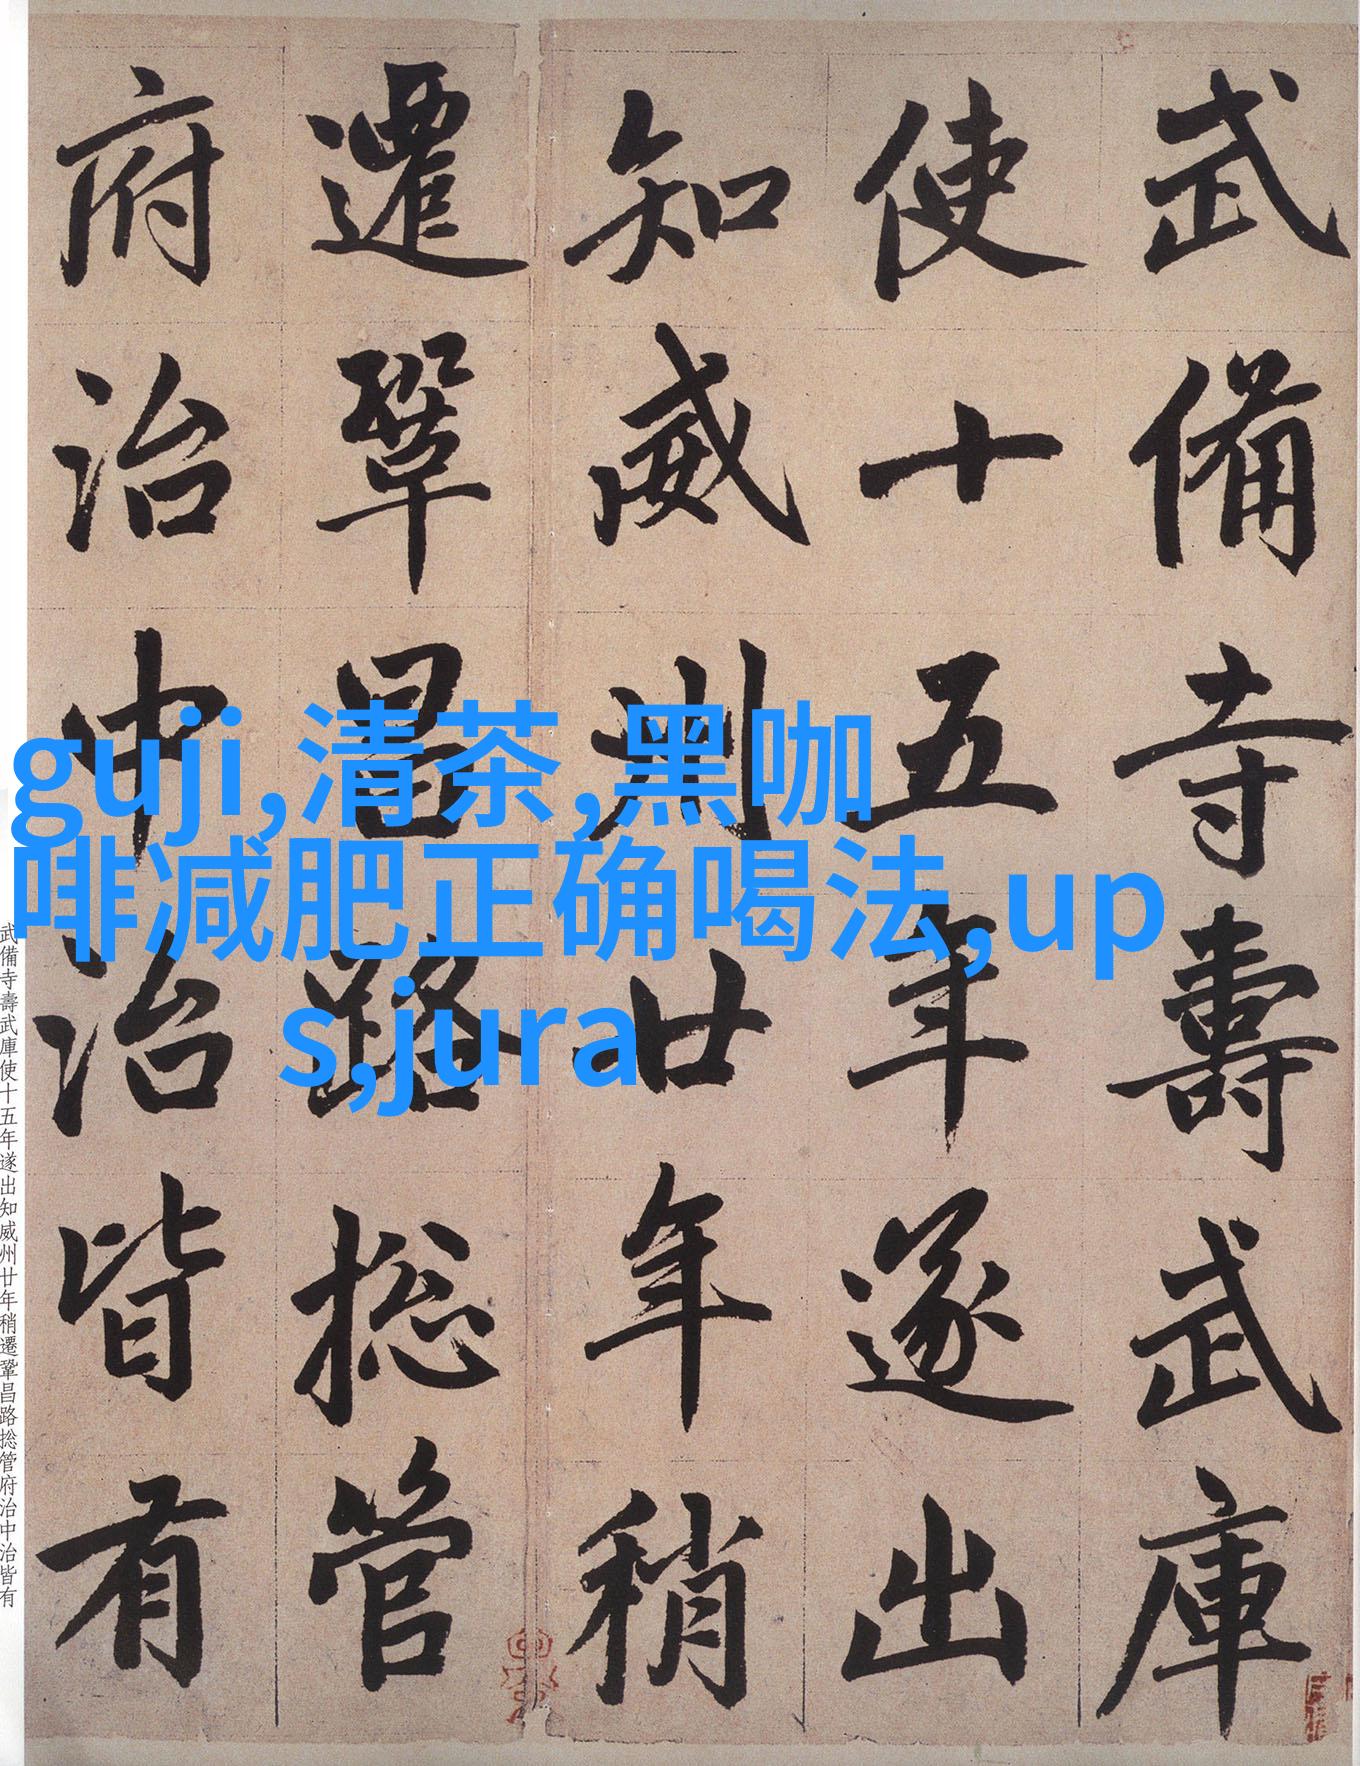 武備寺壽武庫
使十五年遂出
知威州廿年稍
遷鞏昌路捴管
府治中治皆有
guji,清茶,黑咖
啡减肥正确喝法,up
s,jura
武備寺壽武庫使十五年遂出知威州廿年稍遷鞏昌路捴管府治中治皆有